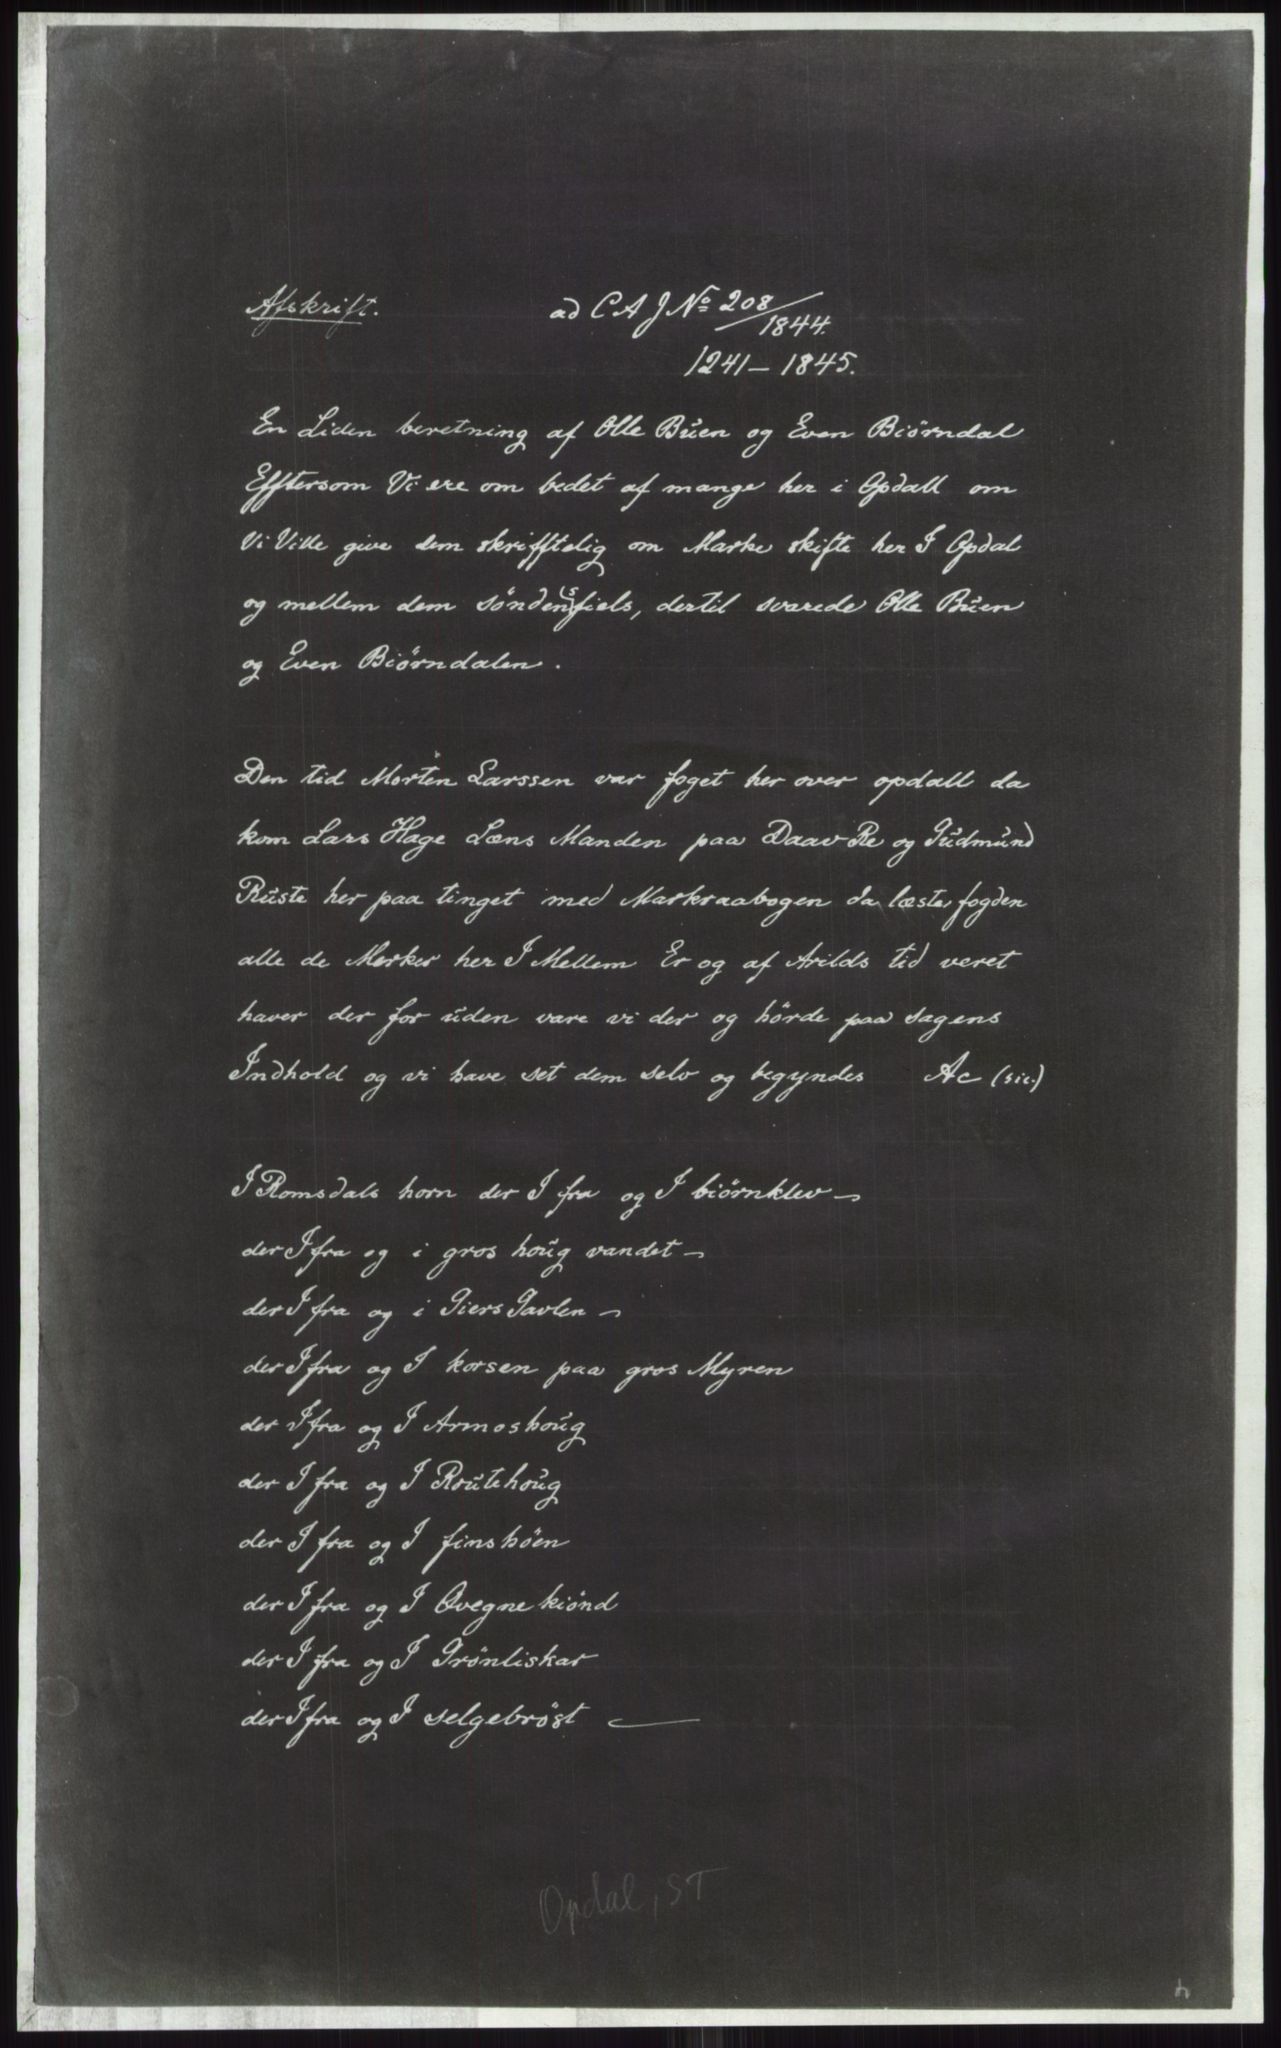 Afskrift.
ad C A J No 208/1844.
1241 — 1845.
En Liden beretning af Olle Buen og Even Biörndal
Efftersom Vi ere om bedet af mange her i Opdall om
Vi Ville give dem skrifftelig om Marke skifte her I Opdal
og mellem dem sönden(s)fiels, dertil svarede Olle Buen
og Even Biörndalen.
Den tid Morten Larssen var foget her over opdall da
kom Lars Hage Læns Manden paa Daav Re og Gudmund
Ruste her paa tinget med Markraabogen da læste fogden
alle de Merker her I Mellem Er og af Arilds tid veret
haver der for uden vare vi der og hörde paa sagens
Indhold og vi have set dem selv og begyndes Ac (sic.)
I Romsdals horn der I fra og I biörnklev —
der I fra og i gros houg vandet —
der I fra og i Giers Gavlen —
der I fra og I korsen paa gros Myren
der I fra og I Armoshoug
der I fra og I Routehoug
der I fra og I finshöen
der I fra og I Qvegne kiönd
der I fra og I Grönliskar
der I fra og I selgebröst —
Opdal, ST